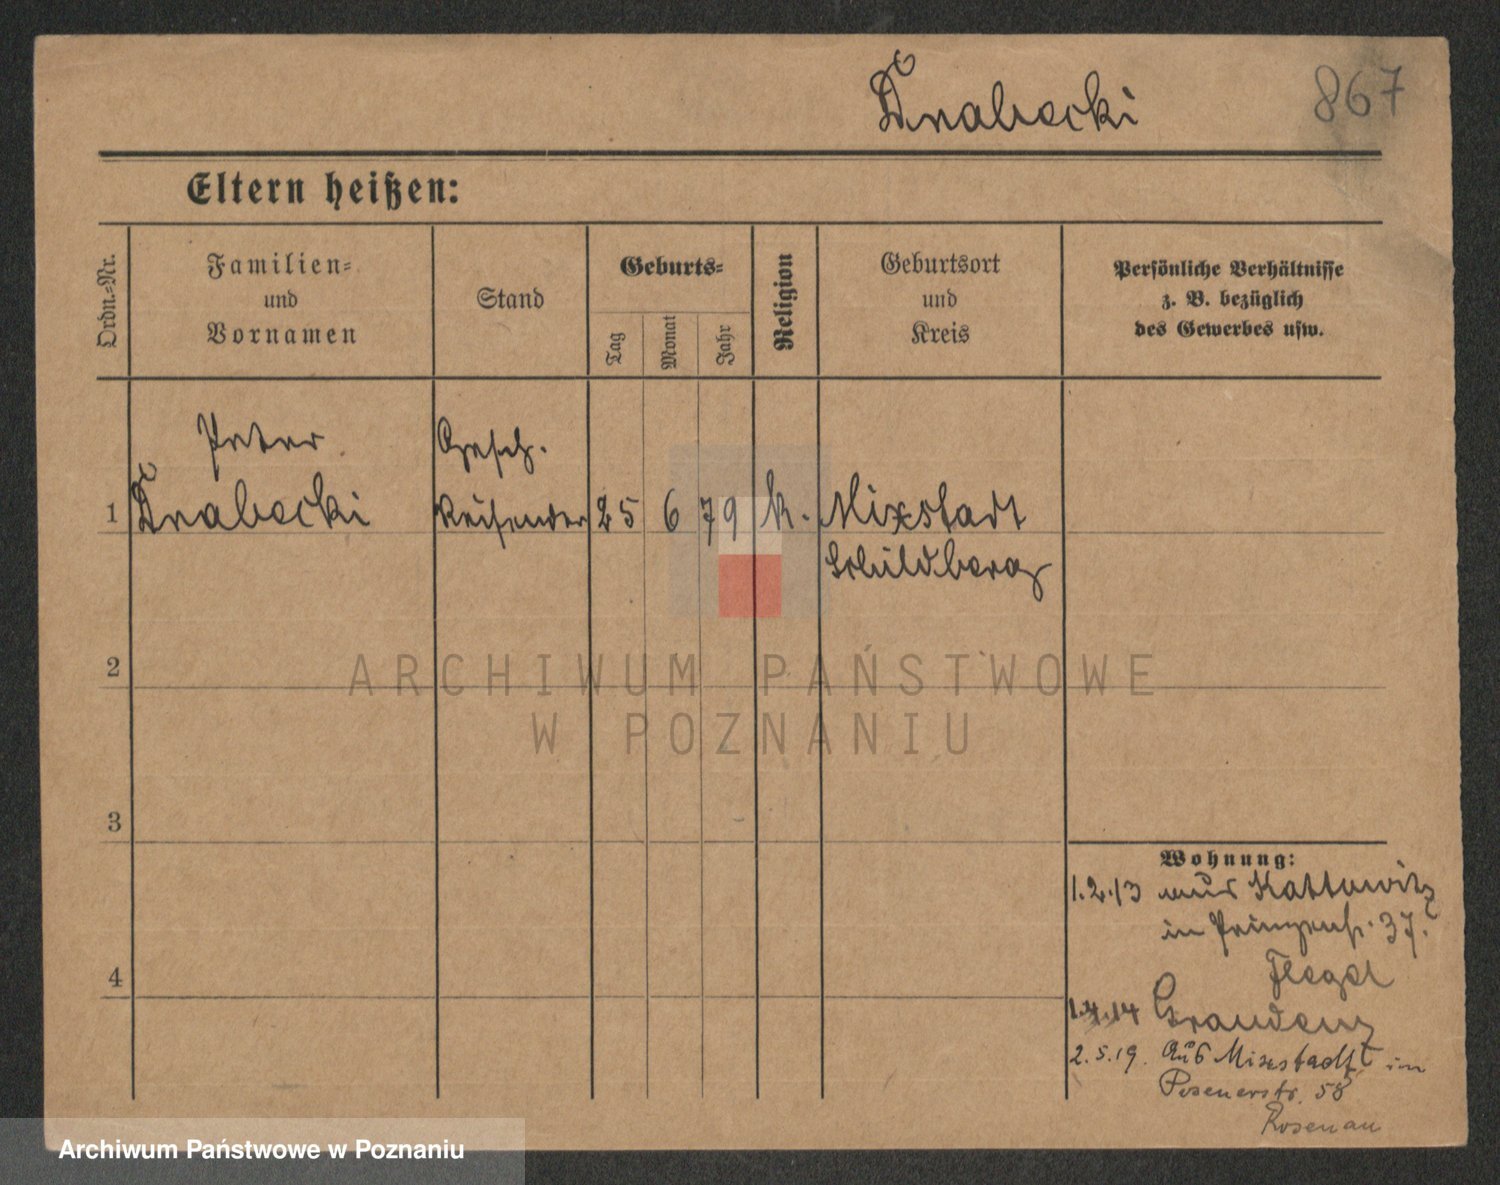 Drabecki
867
Eltern heißen:
Ordn.-Nr.
Familien-
und
Vornamen
Stand
Geburts-
Tag
Monat
Jahr
Religion
Geburtsort
und
Kreis
Persönliche Verhältnisse
z. B. bezüglich
des Gewerbes usw.
1
Peter
Drabecki
Gesch.
Reisender
25
6
79
k.
Mixstadt
Schildberg
2
3
4
Wohnung:
1.2.13 aus Kattowitz
in Prinzenstr. 37.
Flegel
1.4.14 Graudenz
2.5.19. Aus Mixstadt in
Posenerstr. 58
Rosenau
ARCHIWUM PAŃSTWOWE
W POZNANIU
Archiwum Państwowe w Poznaniu